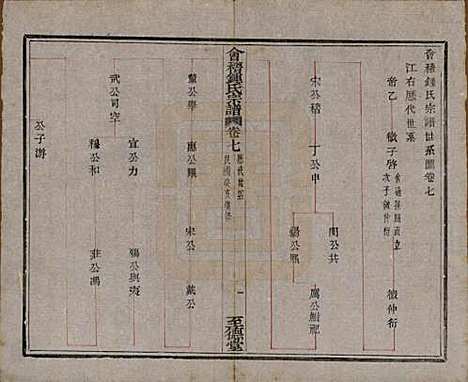 會稽鍾氏宗譜世系圖卷七
江右歷代世系
帝乙 微子啓
次子微仲衍
微仲衍
宋公稽 丁公申
閔公共
煬公熙
厲公鮒祀
會稽鍾氏宗譜圖卷七
歷代世系
一
至德堂
釐公舉 惠公覵 宋公 戴公
武公司空 宣公力 殤公與夷
穆公和 莊公馮
公子游